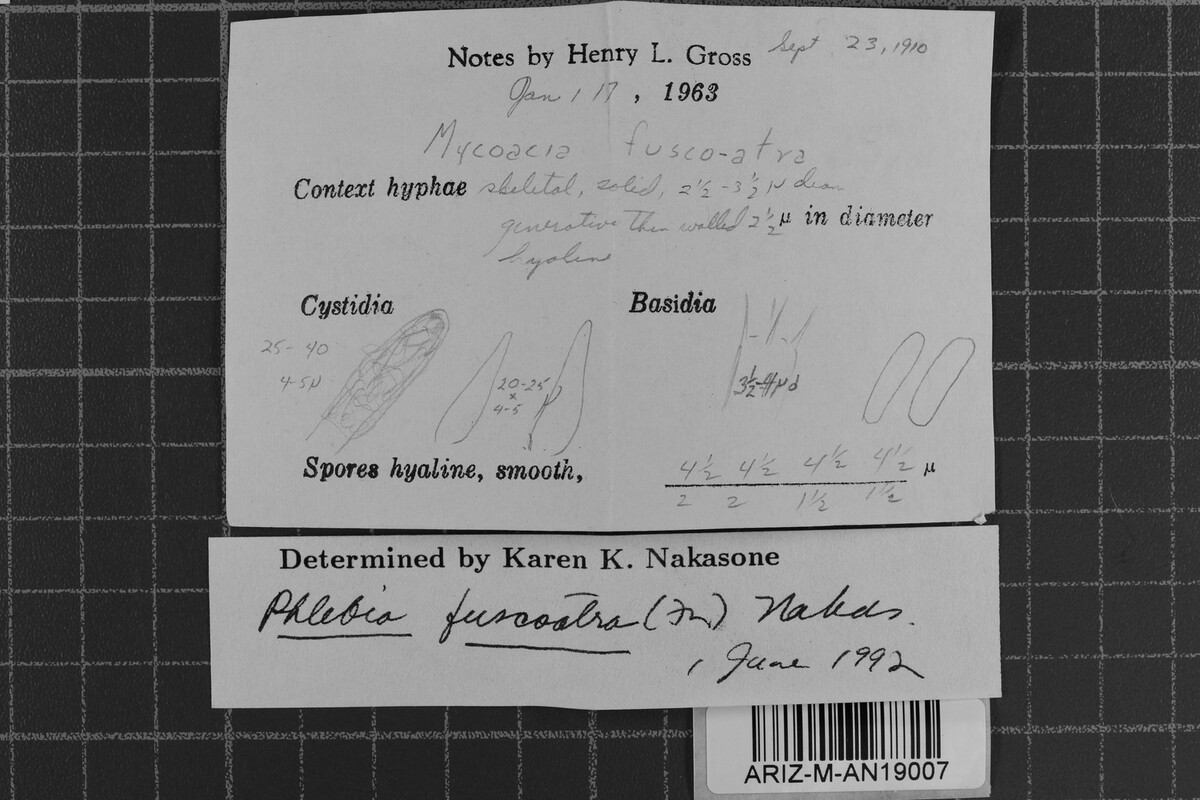 Notes by Henry L. Gross Sept 23, 1910
Jan 17, 1963
Mycoacia fusco-atra
Context hyphae skeletal, solid, 2½-3½ μ diam
generative thin walled 2½ μ in diameter
hyaline
Cystidia Basidia
25-40
4-5μ
20-25
x
4-5
3½-4μ d
Spores hyaline, smooth, 4½ 4½ 4½ 4½ μ
2 2 1½ 1½
Determined by Karen K. Nakasone
Phlebia fuscoatra (Fr.) Nakas.
1 June 1992
ARIZ-M-AN19007